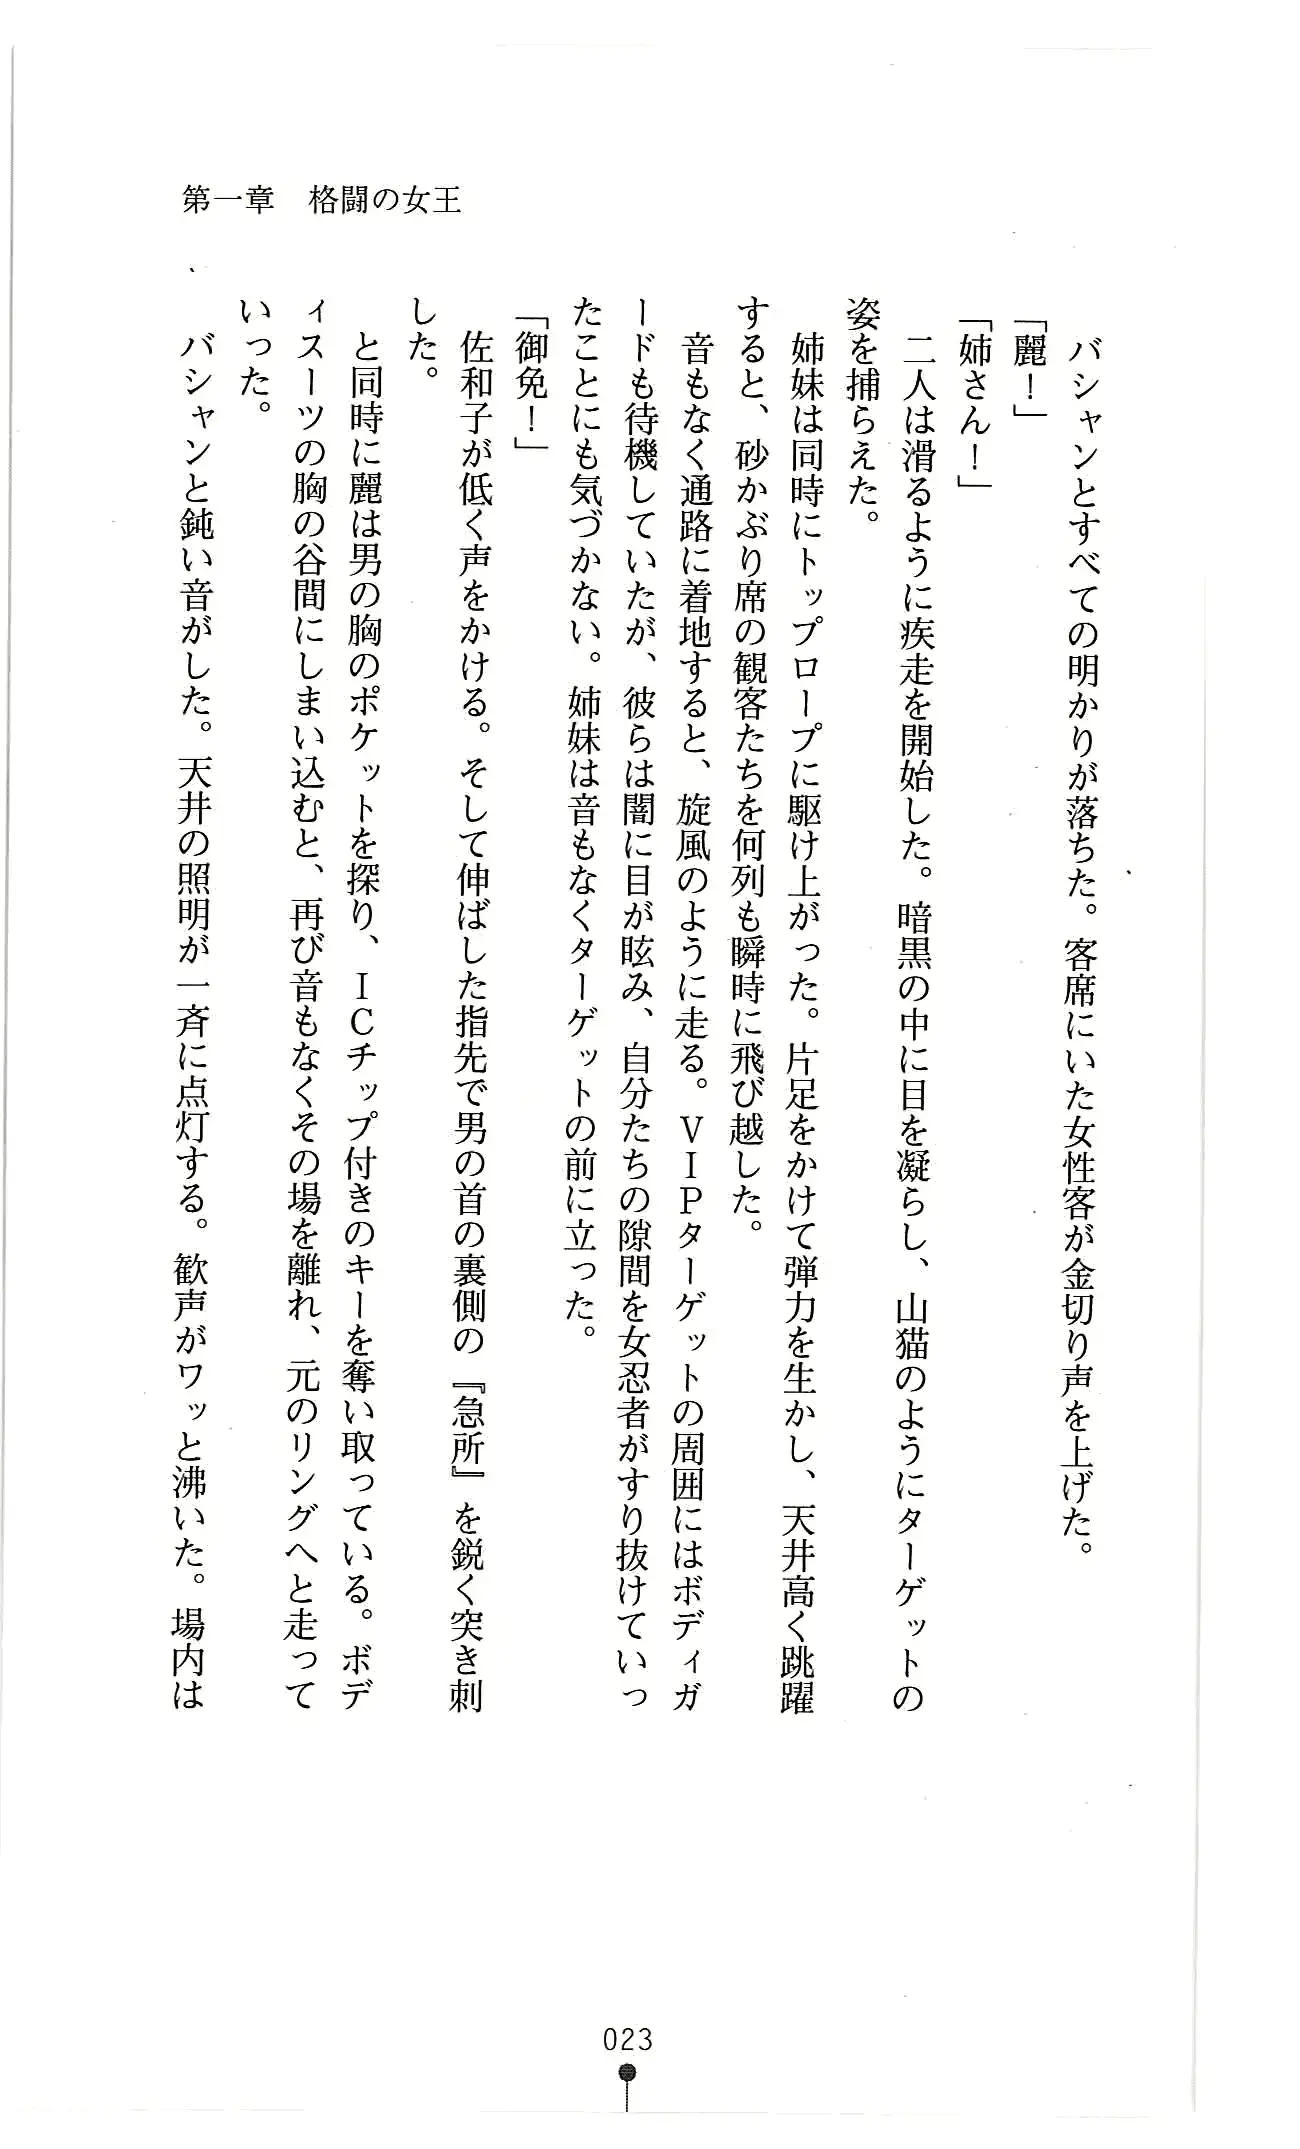 第一章　格闘の女王
　バシャンとすべての明かりが落ちた。客席にいた女性客が金切り声を上げた。
「麗！」
「姉さん！」
　二人は滑るように疾走を開始した。暗黒の中に目を凝らし、山猫のようにターゲットの
姿を捕らえた。
　姉妹は同時にトップロープに駆け上がった。片足をかけて弾力を生かし、天井高く跳躍
すると、砂かぶり席の観客たちを何列も瞬時に飛び越した。
　音もなく通路に着地すると、旋風のように走る。ＶＩＰターゲットの周囲にはボディガ
ードも待機していたが、彼らは闇に目が眩み、自分たちの隙間を女忍者がすり抜けていっ
たことにも気づかない。姉妹は音もなくターゲットの前に立った。
「御免！」
　佐和子が低く声をかける。そして伸ばした指先で男の首の裏側の『急所』を鋭く突き刺
した。
　と同時に麗は男の胸のポケットを探り、ＩＣチップ付きのキーを奪い取っている。ボデ
ィスーツの胸の谷間にしまい込むと、再び音もなくその場を離れ、元のリングへと走って
いった。
　バシャンと鈍い音がした。天井の照明が一斉に点灯する。歓声がワッと沸いた。場内は
023